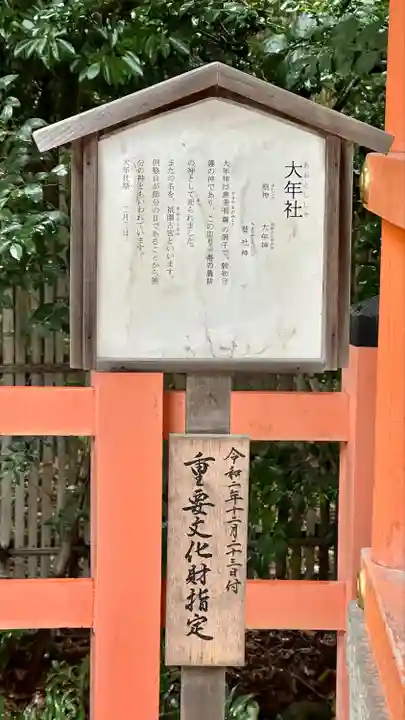 大年社
おおとしゃ
祭神
さいじん
大年神
おおとしのかみ
巷社神
大年神は素戔嗚尊の御子で、穀物守
護の神であり、この辺り一帯の農耕
の神として祀られました。
またの名を、祇園古宮といいます。
例祭日が節分の日であることから節
分の神ともいわれています。
大年社祭 二月三日
令和二年十二月二十三日付
重要文化財指定